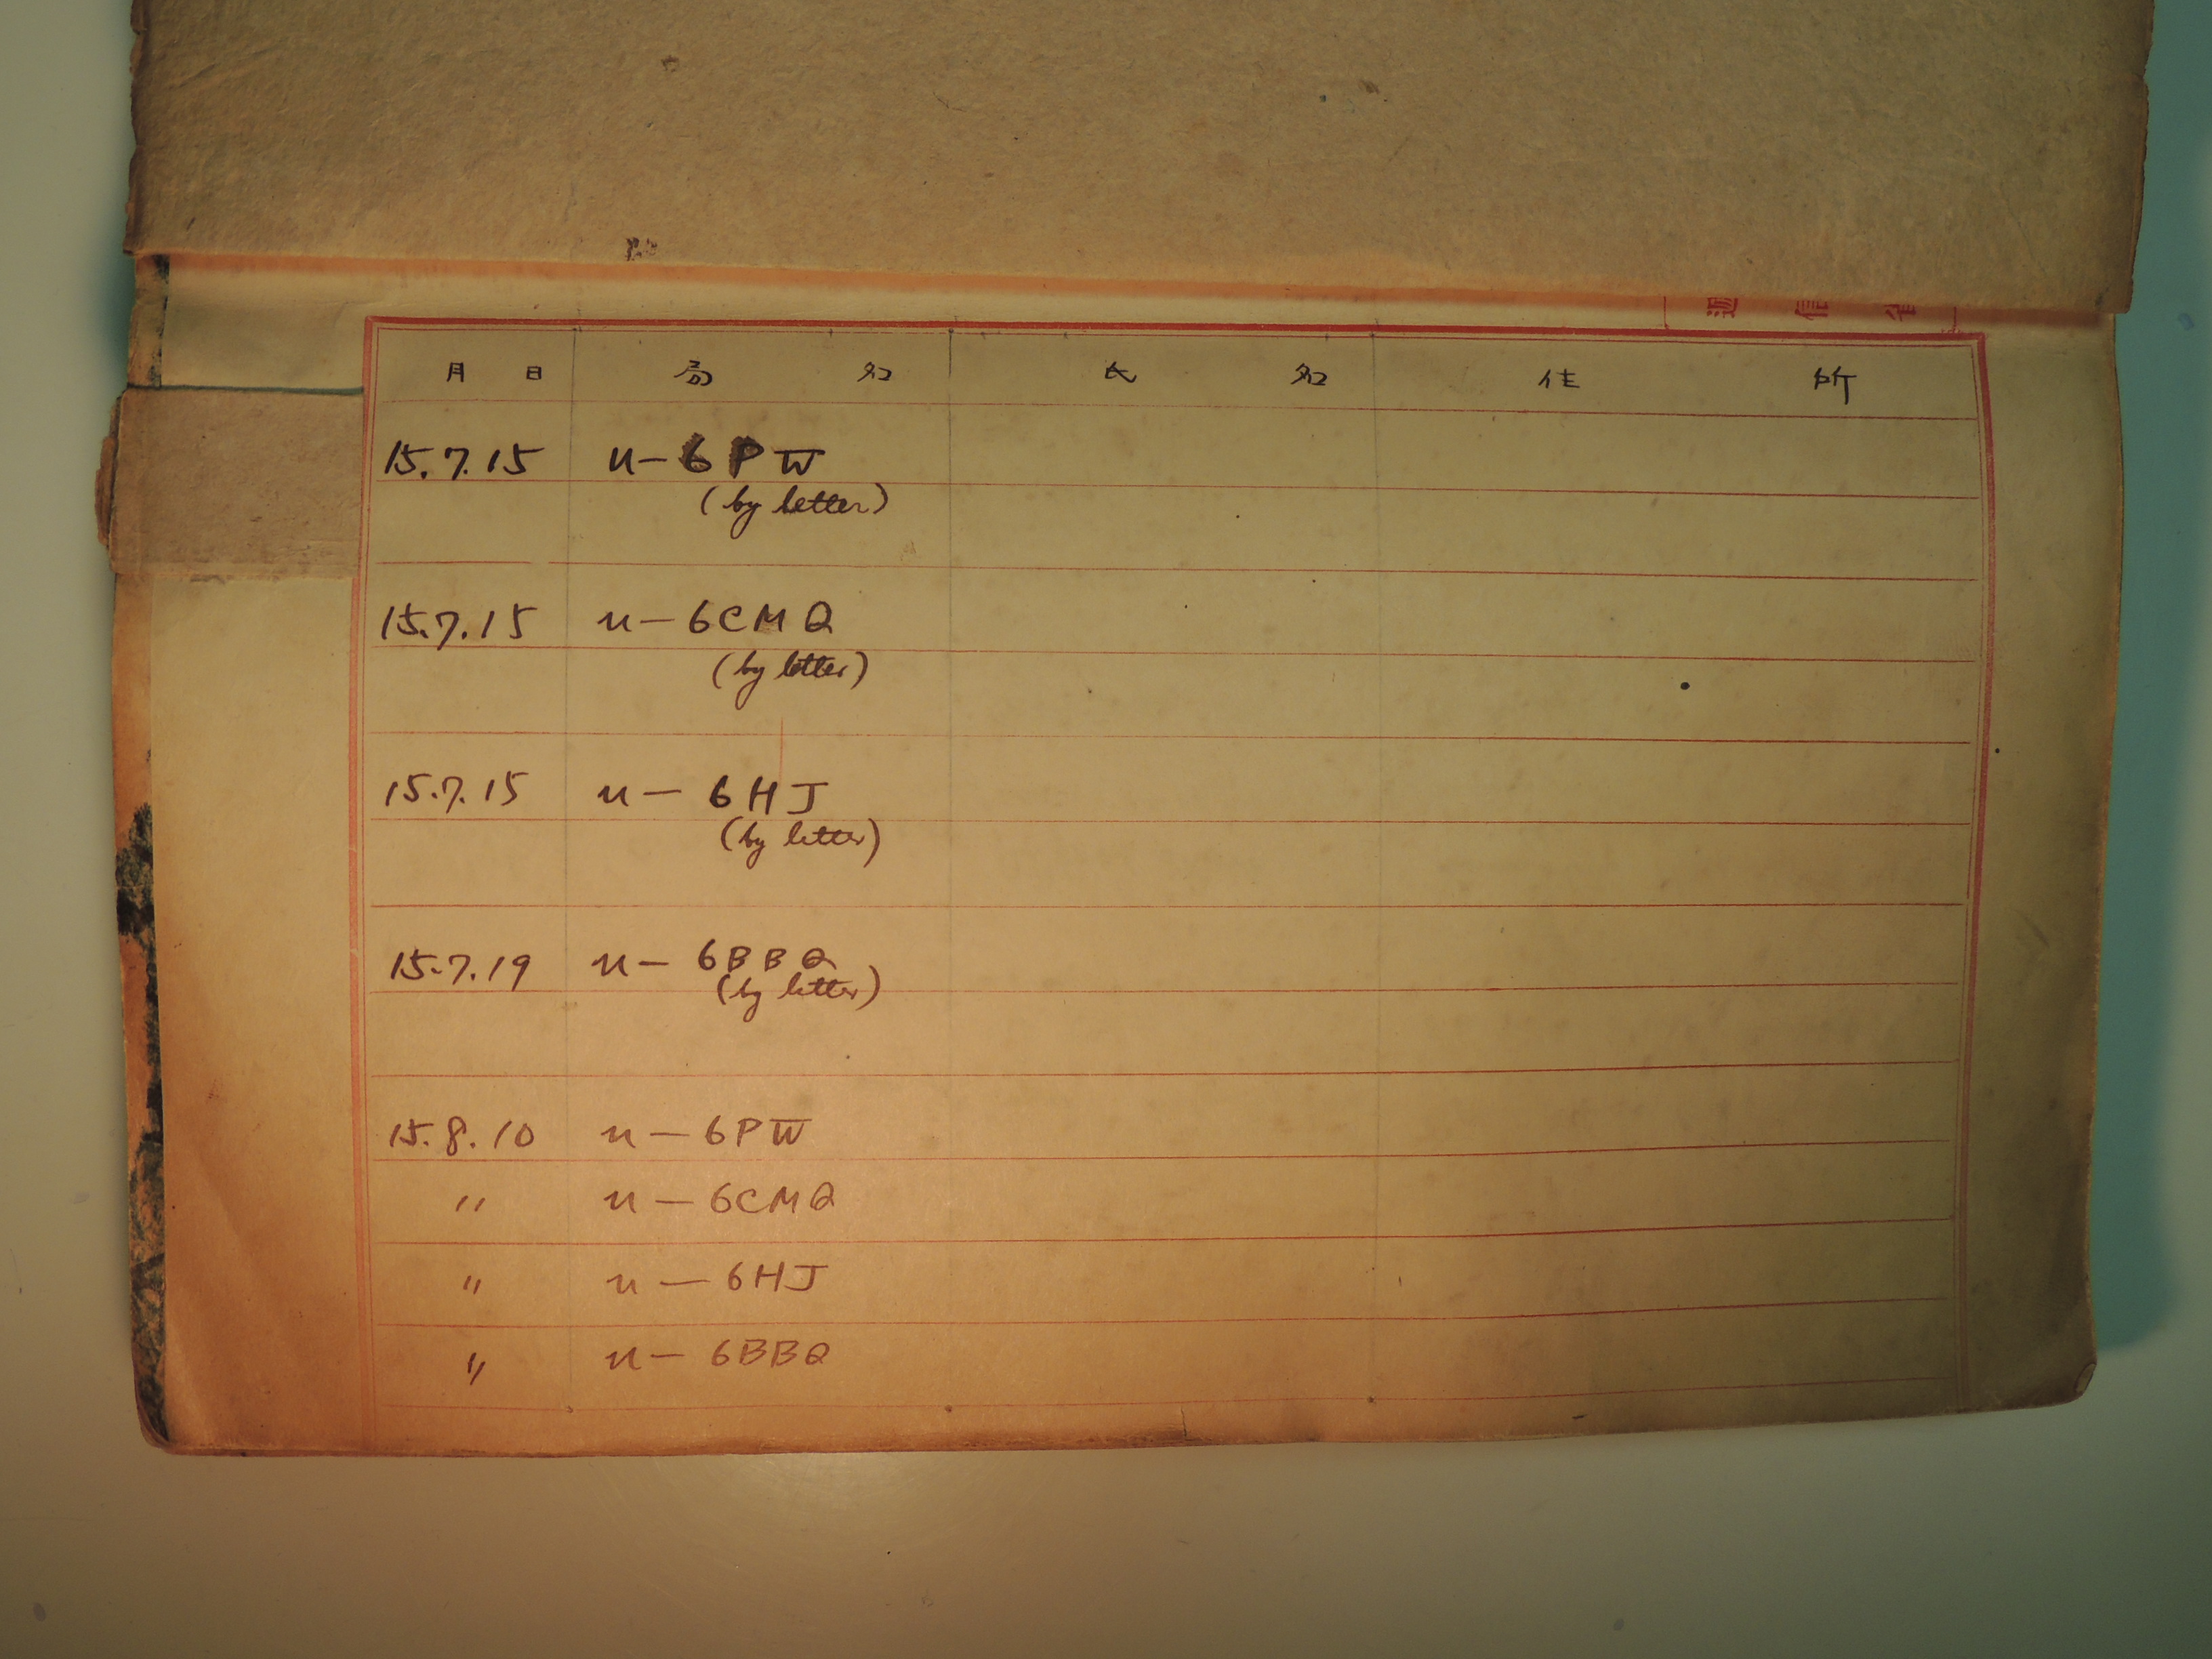 逓信省
月 日 局 名 氏 名 住 所
15.7.15 u-6PW
(by letter)
15.7.15 u-6CMQ
(by letter)
15.7.15 u-6HJ
(by letter)
15.7.19 u-6BBQ
(by letter)
15.8.10 u-6PW
〃 u-6CMQ
〃 u-6HJ
〃 u-6BBQ